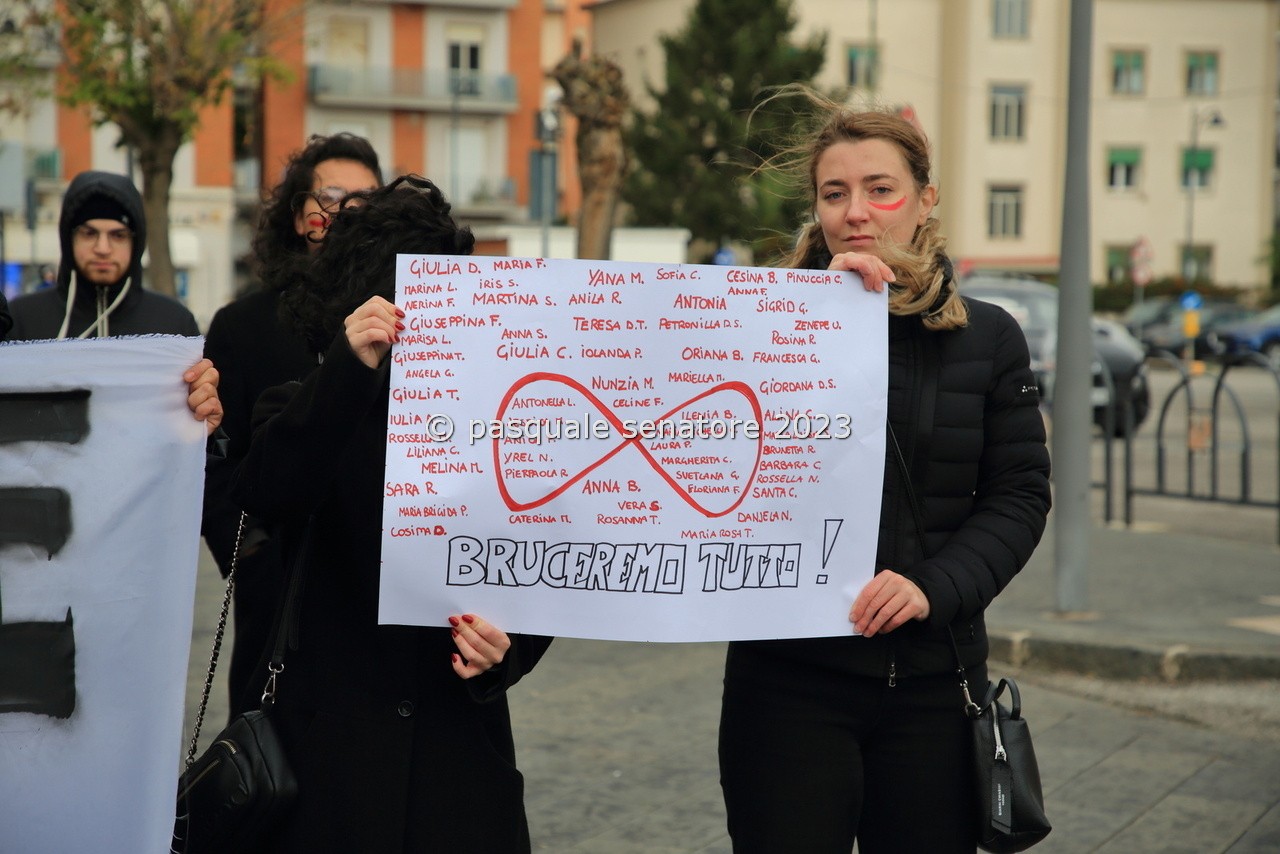 GIULIA D. MARIA F.
YANA M. SOFIA C. CESINA B. PINUCCIA C.
MARINA L. IRIS S. ANNA F.
NERINA F. MARTINA S. ANILA R. ANTONIA SIGRID G.
GIUSEPPINA F. ANNA S. TERESA D.T. PETRONILLA D.S. ZENEPE U.
MARISA L. ROSINA R.
GIUSEPPINA T. GIULIA C. IOLANDA P. ORIANA B. FRANCESCA G.
ANGELA G.
GIULIA T. NUNZIA M. MARIELLA M. GIORDANA D.S.
ANTONELLA L. CELINE F.
IULIA ILENIA B. ALINA C.
© pasquale senatore 2023
ROSSELLA LAURA P.
LILIANA C. YREL N. MARGHERITA C. BRUNETTA R.
MELINA M. PIERPAOLA R. SVETLANA G. BARBARA C.
ROSSELLA N.
SARA R. ANNA B. FLORIANA F. SANTA C.
MARIA BRIGIDA P. VERA S.
COSIMA D. CATERINA M. ROSANNA T. DANJELA N.
MARIA ROSA T.
BRUCEREMO TUTTO !